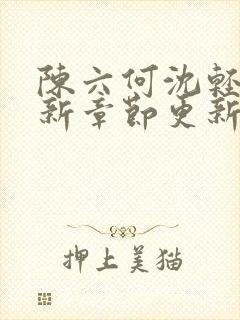 陳六何沈輕
新章節更新
押上美猫